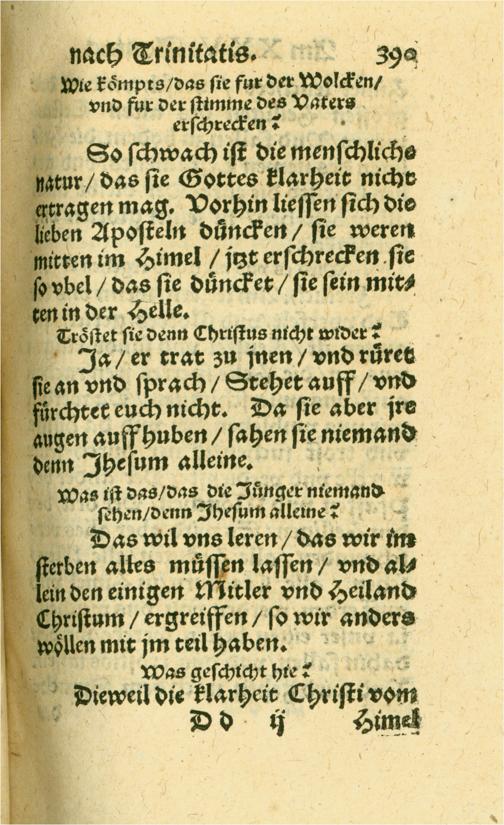 nach Trinitatis. 390
Wie kömpts/das sie fur der Wolcken/
vnd fur der stimme des Vaters
erschrecken?
So schwach ist die menschliche
natur/ das sie Gottes klarheit nicht
ertragen mag. Vorhin liessen sich die
lieben Aposteln düncken/ sie weren
mitten im Himel / jtzt erschrecken sie
so vbel / das sie düncket / sie sein mit⸗
ten in der Helle.
Tröstet sie denn Christus nicht wider?
Ja/ er trat zu jnen / vnd rüret
sie an vnd sprach / Stehet auff/ vnd
fürchtet euch nicht. Da sie aber jre
augen auffhuben / sahen sie niemand
denn Jhesum alleine.
Was ist das/das die Jünger niemand
sehen/denn Jhesum alleine?
Das wil vns leren / das wir im
sterben alles müssen lassen / vnd al⸗
lein den einigen Mitler vnd Heiland
Christum / ergreiffen / so wir anders
wöllen mit jm teil haben.
Was geschicht hie?
Dieweil die klarheit Christi vom
D d ij Himel